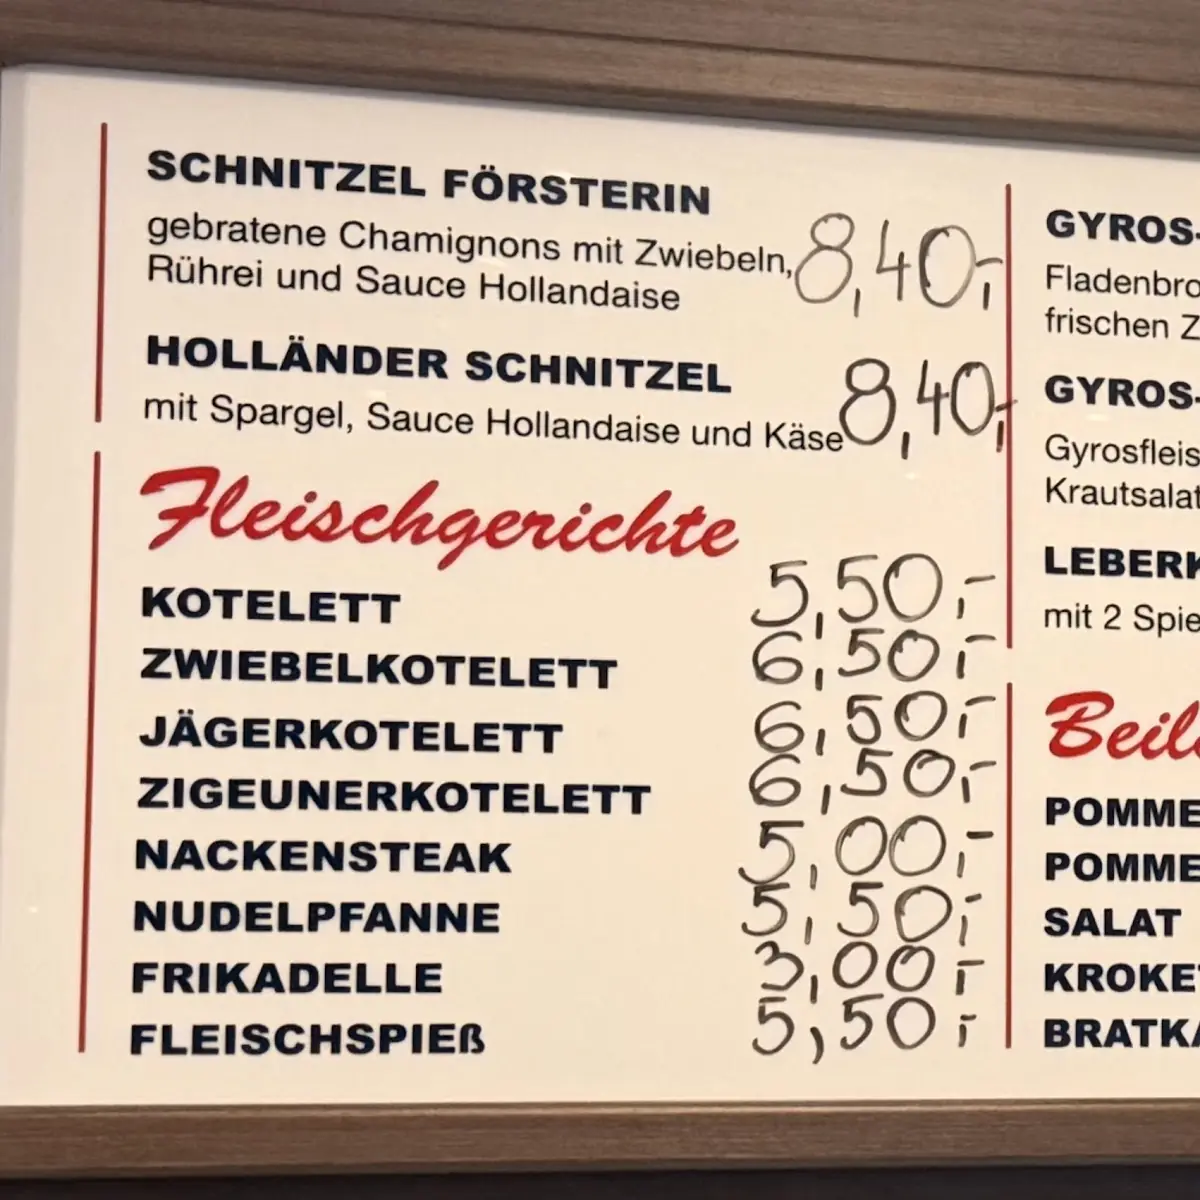 SCHNITZEL FÖRSTERIN
gebratene Chamignons mit Zwiebeln, 8,40,-
Rührei und Sauce Hollandaise
HOLLÄNDER SCHNITZEL
mit Spargel, Sauce Hollandaise und Käse 8,40,-
Fleischgerichte
KOTELETT 5,50,-
ZWIEBELKOTELETT 6,50,-
JÄGERKOTELETT 6,50,-
ZIGEUNERKOTELETT 6,50,-
NACKENSTEAK 5,00,-
NUDELPFANNE 5,50,-
FRIKADELLE 3,00,-
FLEISCHSPIEß 5,50,-
GYROS-
Fladenbro
frischen Z
GYROS-
Gyrosfleis
Krautsalat
LEBERK
mit 2 Spie
Beil
POMME
POMME
SALAT
KROKET
BRATKA